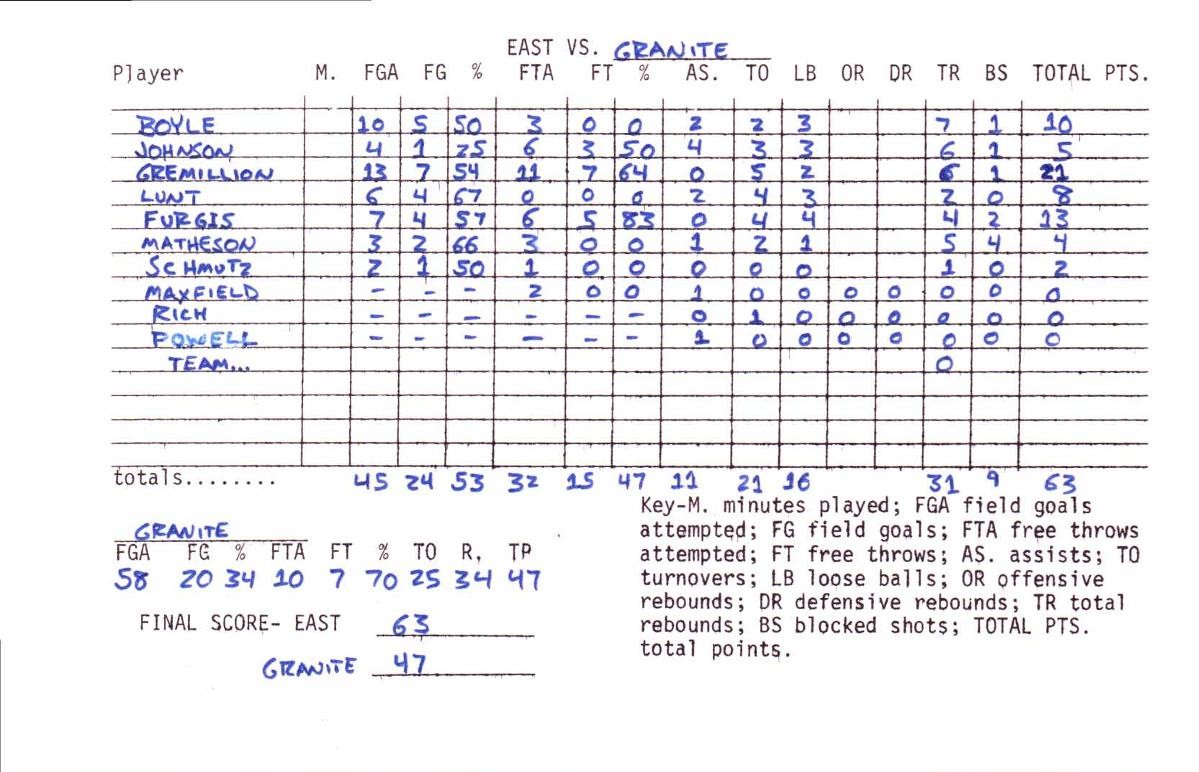 EAST VS. GRANITE
Player M. FGA FG % FTA FT % AS. TO LB OR DR TR BS TOTAL PTS.
BOYLE 10 5 50 3 0 0 2 2 3 7 1 10
JOHNSON 4 1 25 6 3 50 4 3 3 6 1 5
GREMILLION 13 7 54 11 7 64 0 5 2 6 1 21
LUNT 6 4 67 0 0 0 2 4 3 2 0 8
FURGIS 7 4 57 6 5 83 0 4 4 4 2 13
MATHESON 3 2 66 3 0 0 1 2 1 5 4 4
SCHMUTZ 2 1 50 1 0 0 0 0 0 1 0 2
MAXFIELD - - - 2 0 0 1 0 0 0 0 0 0 0
RICH - - - - - - 0 1 0 0 0 0 0 0
POWELL - - - - - - 1 0 0 0 0 0 0 0
TEAM... 0
totals........ 45 24 53 32 15 47 11 21 16 31 9 63
Key-M. minutes played; FGA field goals
attempted; FG field goals; FTA free throws
attempted; FT free throws; AS. assists; TO
turnovers; LB loose balls; OR offensive
rebounds; DR defensive rebounds; TR total
rebounds; BS blocked shots; TOTAL PTS.
total points.
GRANITE
FGA FG % FTA FT % TO R, TP
58 20 34 10 7 70 25 34 47
FINAL SCORE- EAST 63
GRANITE 47